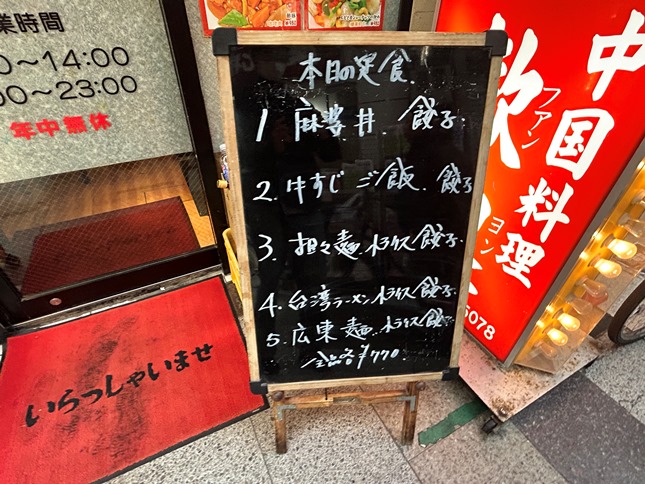 業時間
0〜14:00
00〜23:00
年中無休
本日の定食
1 麻婆丼 餃子
2. 牛すじご飯. 餃子
3. 担々麺. 半ライス 餃子
4. 台湾ラーメン. 半ライス 餃子
5. 広東麺. 半ライス 餃子
全品各¥770
いらっしゃいませ
中国料理
ファン
ヨン
5078